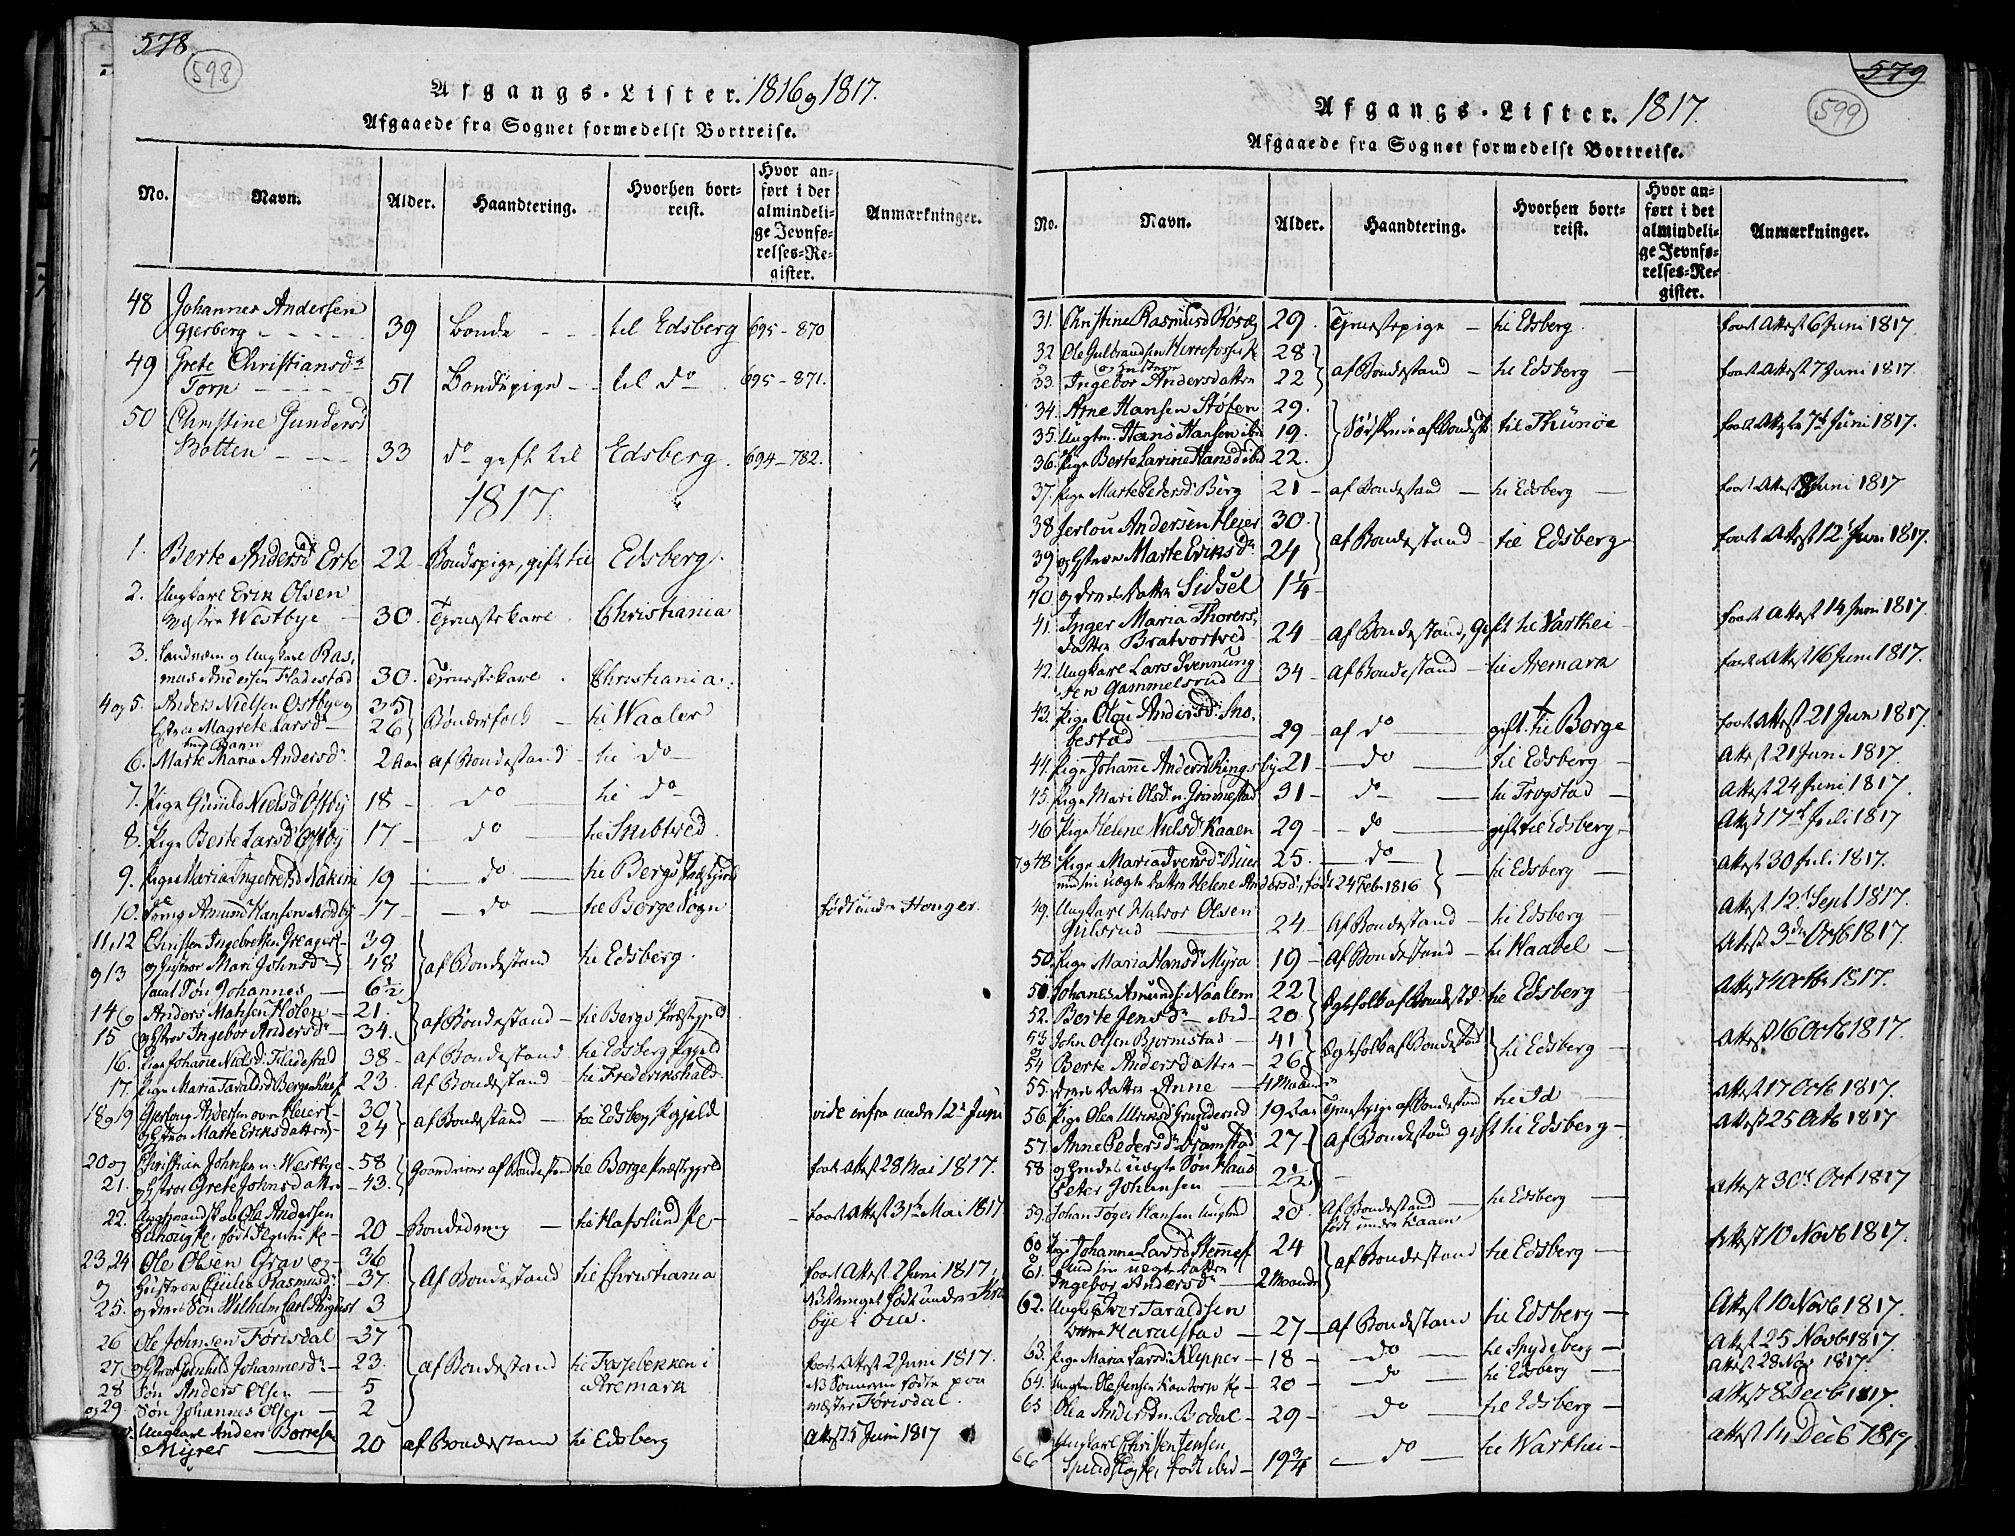 578
598
Afgangs-Lister. 1816 og 1817.
Afgaaede fra Sognet formedelst Bortreise.
No. Navn. Alder. Haandtering. Hvorhen bortreist. Hvor anført i det almindelige Jevnførelses-Register. Anmærkninger.
48 Johannes Andersen
Gjerberg 39 Bonde til Edsberg 695-870
49 Grete Christiansd.
Torp 51 Bondepige til do 695-871.
50 Christine Gundersd
Botten 33 do gift til Edsberg 694-782.
1817
1. Berte Andersd Erte 22 Bondepige, gift til Edsberg.
2. Ungkarl Erik Olsen
Westbye 30. Tjenestekarl. Christiania
3. Landværn og Ungkarl Ras,
mus Andersen Fladestad 30. Tjenestekarl. Christiania.
4 og 5. Anders Nielsen Ostbye og 35
Magrete Larsd 26 Bønderfolk til Waaler
6. Marte Maria Andersd. 2 Aar af Bondestand til do
7. Pige Gunild Nielsd Østby 18 do til do
8. Pige Berte Larsd Østby 17 do til
9. Pige Maria Ingebretsd Nakim 19 do til Bergs Præstgjeld
10. Dreng Amund Hansen Nordby 17 do til Borge Sogn født under Honger
11, 12 Christen Ingebretsen Greager 39
og 13 og Hustroe Mari Johnsd. 48 af Bondestand til Edsberg.
samt Søn Johannes 6½
14 og Anders Mathsen Holen 21.
15 og Hustroe Ingebor Andersd. 34. af Bondestand til Bergs Præstgjeld
16. Pige Johanne Nielsd. Fladestad 38 af Bondestand til Edsberg Pgjeld
17. Pige Maria Taraldsd Bergenhuus 23. af Bondestand til Frederikshald.
18 og 19 Gjerloug Andersen øvre Heier 30
og Hustroe Marte Eriksdatter 24 af Bondestand til Edsberg Pgjeld vide infra under 12te Juni
20 og Christian Johnsen n. Westbye 58
21. og Hustroe Grete Johnsdatter 43. Gaardmænd af Bondestand til Borge Præstegjeld faaet Attest 28 Mai 1817.
22. Ole Andersen
20 Bondedreng til Hafslund faaet Attest 31te Mai 1817
23, 24 Ole Olsen Grav og 36
og Hustroe Cicilie Rasmusd. 37. Af Bondestand til Christiania faaet Attest 2 Juni 1817,
25. og deres Søn Wilhelm Carl August 3
26 Ole Johnsen Førisdal 37
27 og Hustroe Gunhild Johannesd. 23. af Bondestand til i faaet Attest 2 Juni 1817.
28 Søn Anders Olsen 5 Aremark NB Sønnerne fødte paa
og 29. Søn Johannes Olsen 2 Førisdal.
Ungkarl Anders Borresen
Myrer 20 af Bondestand til Edsberg Attest 5 Juni 1817
579
599
Afgangs-Lister. 1817.
Afgaaede fra Sognet formedelst Bortreise.
No. Navn. Alder. Haandtering. Hvorhen bortreist. Hvor anført i det almindelige Jevnførelses-Register. Anmærkninger.
31. Christine Rasmusd 29. Tjenestepige til Edsberg. faaet Attest 6 Juni 1817.
32 Ole Gulbrandsen 28
og
33. Ingebor Andersdatter 22 af Bondestand til Edsberg faaet Attest 7 Juni 1817
34. Arne Hansen Støten 29.
35. Ungm. Hans Hansen ibid 19. af Bondest. til Thunøe faaet Attest 7de Juni 1817.
36. Pige Berte Larine Hansd ibid 22.
37. Pige Marte Pedersd Berg 21 af Bondestand til Edsberg faaet Attest 8 Juni 1817
38 Jerlou Andersen Heier 30.
39 og Hustroe Marte Eriksd. 24 af Bondestand til Edsberg faaet Attest 12te Juni 1817.
40 og deres Datter Sidsel 1¼
41. Inger Maria Thorers,
datter Bratvortved 24 af Bondestand, Gift til Varthei faaet Attest 14 Juni 1817.
42. Ungkarl Lars Svennung
sen Gammelsrud 34 af Bondestand til Aremark faaet Attest 16 Juni 1817.
43. Pige Olou Andersd. Sno,
bestad 29 af do gift til Borge faaet Attest 21 Juni 1817.
44. Pige Johanne Andersd Ringsbye 21 do til Edsberg Attest 21 Juni 1817.
45. Pige Mari Olsd. n Grimestad 31 do til Trogstad Attest 24 Juni 1817.
46 Pige Helene Nielsd Kaaen 29 do gift til Edsberg Attest 17de Juli 1817
7 og 48 Pige Maria Iversd. Buer 25. do til Edsberg Attest 30 Juli 1817.
med sin uægte Datter Helene Andersd, født 24 Febr 1816
49. Ungkarl Halvor Olsen
Gulsrud 24 Af Bondestand til Edsberg Attest 12te Sept 1817.
50. Pige Maria Hansd Myra 19 af Bondestand til Waabel Attest 3de Octb 1817.
51. Johanes Amunds. Naalem 22
52. Berte Jensd. ibid 20 Egtefolk af Bondestd. til Edsberg Attest 4 Octbr 1817.
53 John Olsen Bjørnstad 41
54 Berte Andersdatter 26 Egtefolk af Bondestand til Edsberg Attest 16 Octb 1817.
55. deres Datter Anne 4 Maaneder
56. Pige Olea Grunderud 19 Aar Tjenestepige af Bondestand til Id Attest 17 Octb 1817.
57. Anne Pedersd. Dramstad 27 af Bondestand gift til Edsberg Attest 25 Octb 1817
58 og hendes uægte Søn Hans
Peter Johansen 2½ Attest 30te Oct 1817
59. Johan Hansen 20 Af Bondestand til Edsberg
født under Kaaen
60 Pige Johanne Larsd 24
og med sin uægte Datter af Bondestand til Edsberg Attest 10 Novb 1817.
61. Ingebor Andersd 2 Maaneder
62. Iver Taraldsen
Haralstad 27 af Bondestand til Edsberg Attest 10 Novb 1817.
63. Pige Maria Larsd. Klepper 18 do til Spydeberg Attest 25 Novb 1817.
64. Ungm. Ole Stensen 20 do til Edsberg Attest 28 Nov 1817.
65 Olea Andersd n. Bodal 29 do til Edsberg Attest 8 Decb 1817.
Ungkarl Christen Jensen
66 født ibid 19¾ do til Warthei Attest 14 Decb 1817